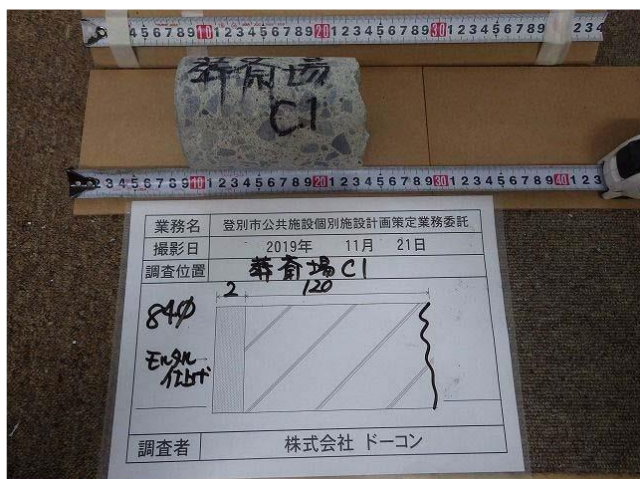 4 5 6 7 8 9 10 1 2 3 4 5 6 7 8 9 20 1 2 3 4 5 6 7 8 9 30 1 2 3 4 5 6 7 8 9
葬斎場
C1
2 3 4 5 6 7 8 9 10 1 2 3 4 5 6 7 8 9 20 1 2 3 4 5 6 7 8 9 30 1 2 3 4 5 6 7 8 9 40 1 2 3
業務名 登別市公共施設個別施設計画策定業務委託
撮影日 2019年 11月 21日
調査位置 葬斎場C1
2 120
84φ
モルタル
仕上げ
調査者 株式会社 ドーコン